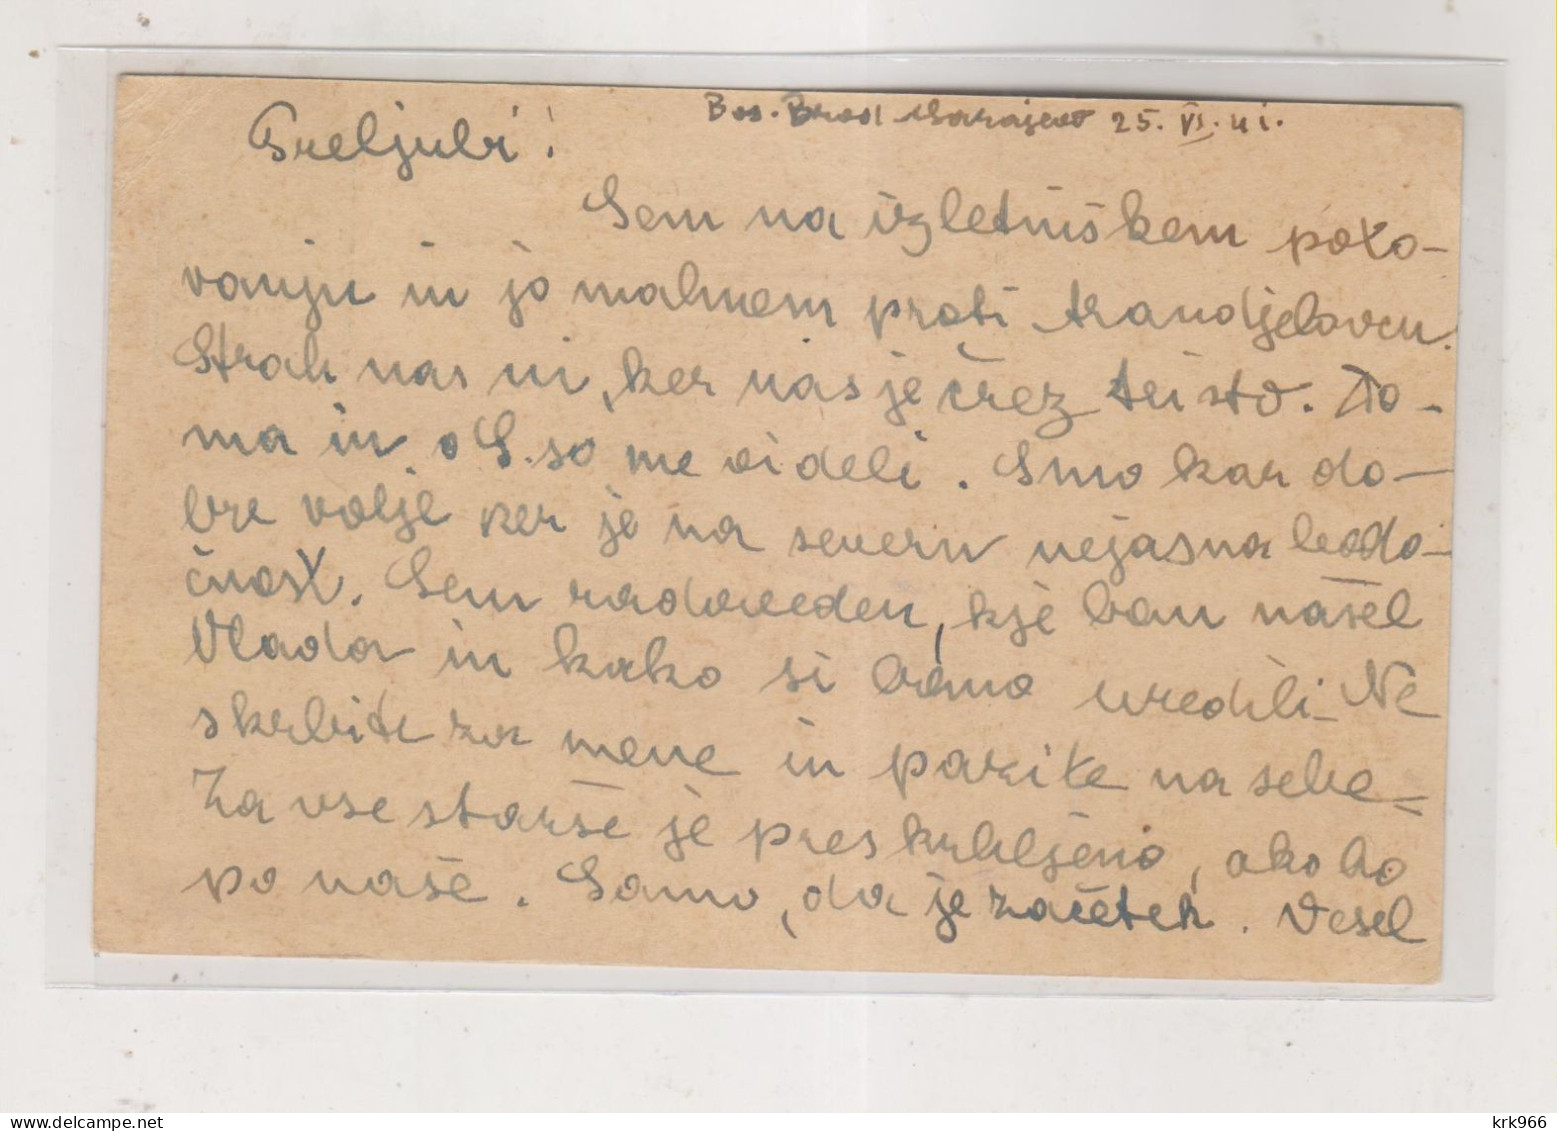 Preljubi! Bos. Brod Sarajevo 25. VI. 41.
Sem na izletniškem poto-
vanju in jo mahnem proti Arandjelovcu.
Strah nas ni, ker nas je črez tristo. To-
ma in S. so me videli. Smo kar do-
bre volje ker je na severu nejasna bodo-
čnost. Sem radoveden, kje bom našel
Vlada in kako si bomo uredili. Ne
skrbite za mene in pazite na sebe =
Za vse starše je preskrbljeno, ako bo
po naše. Samo, da je začetek. Vesel
krk966